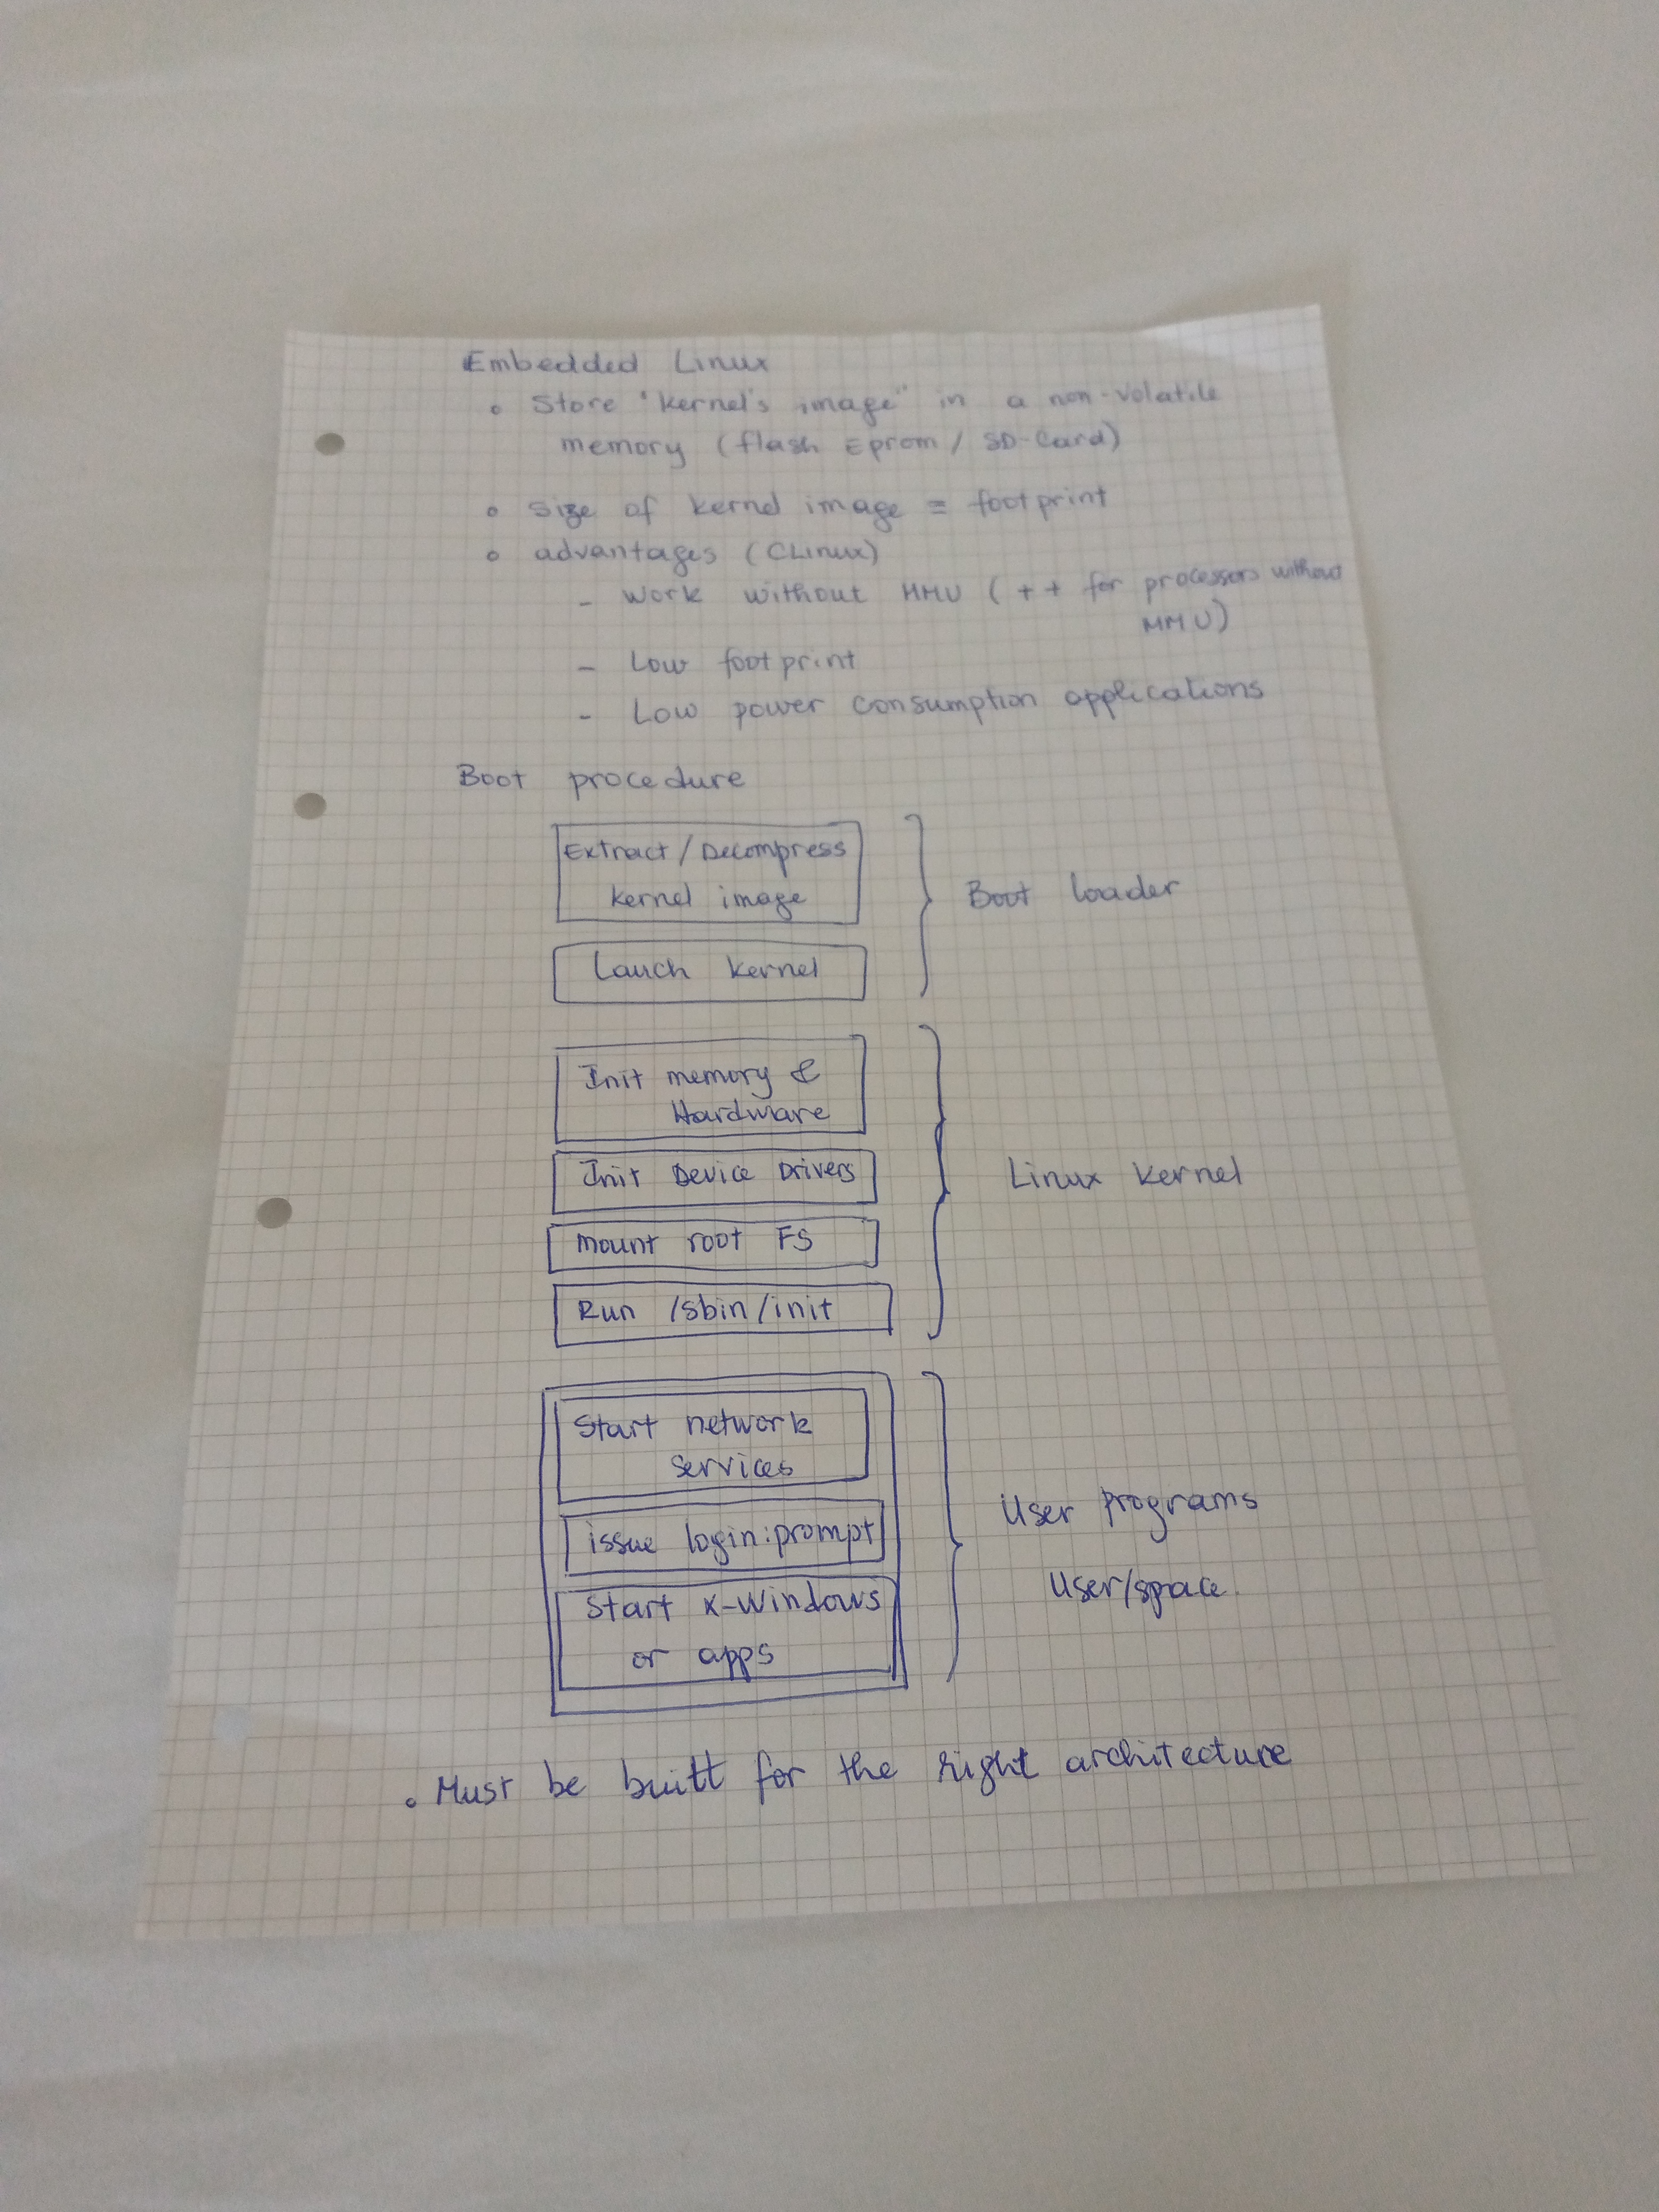 Embedded Linux
• Store "kernel's image" in a non-volatile
memory (flash Eprom / SD-Card)
• Size of kernel image = footprint
• advantages (CLinux)
- Work without MMU (++ for processors without
MMU)
- Low footprint
- Low power consumption applications
Boot procedure
Extract / Decompress
kernel image
Boot loader
Lauch kernel
Init memory &
Hardware
Init Device Drivers
Linux kernel
mount root FS
Run /sbin/init
Start network
services
issue login:prompt
User programs
User/space
Start X-Windows
or apps
• Must be built for the right architecture